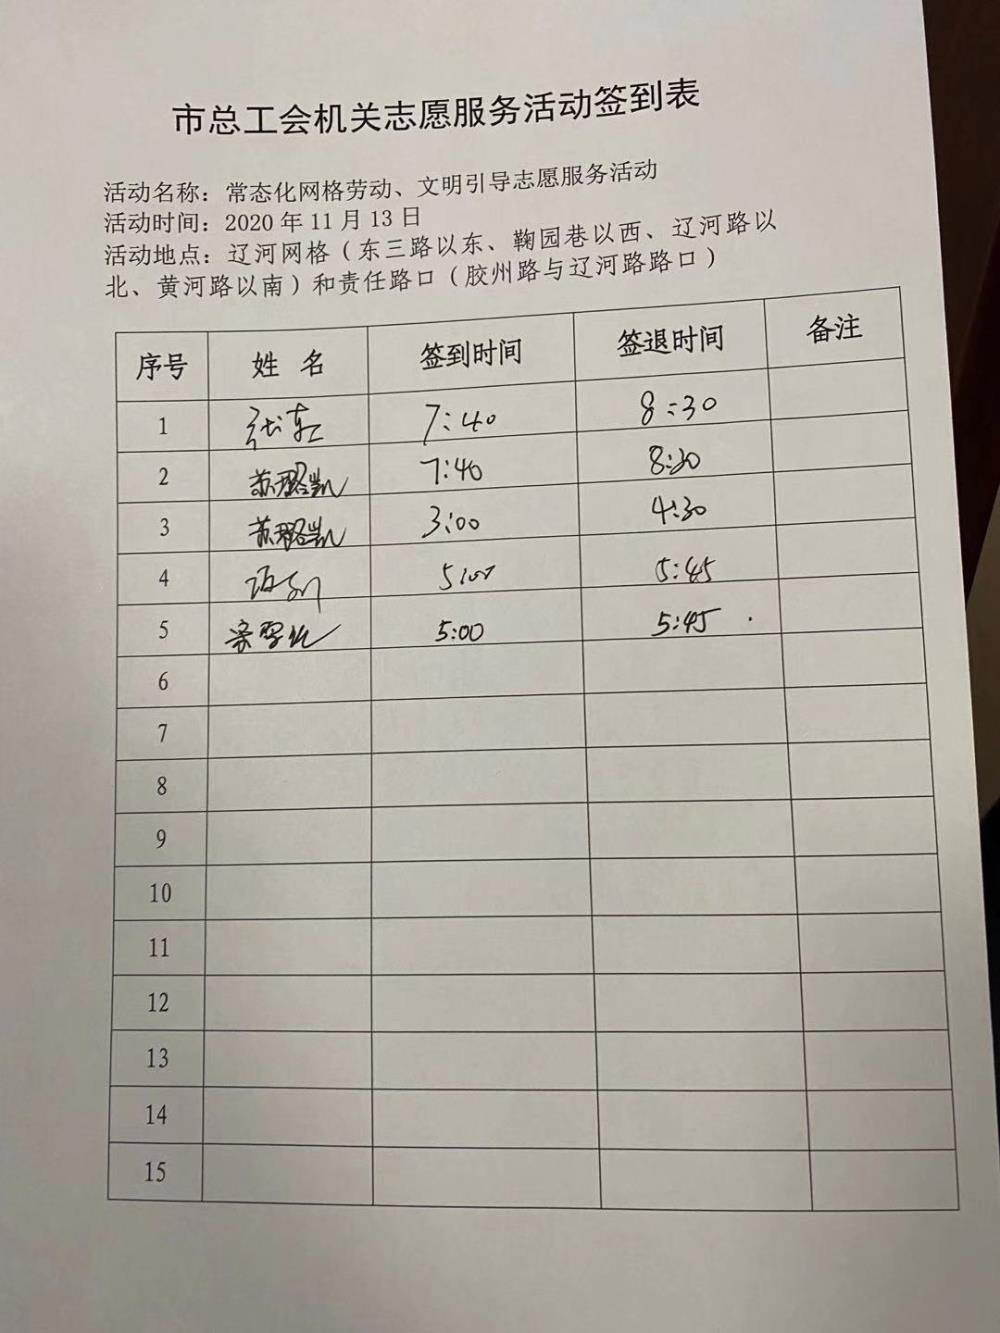 市总工会机关志愿服务活动签到表
活动名称：常态化网格劳动、文明引导志愿服务活动
活动时间：2020 年 11 月 13 日
活动地点：辽河网格（东三路以东、鞠园巷以西、辽河路以
北、黄河路以南）和责任路口（胶州路与辽河路路口）
序号 姓 名 签到时间 签退时间 备注
1 7:40 8:30
2 7:40 8:30
3 3:00 4:30
4 5:00 5:45
5 5:00 5:45
6
7
8
9
10
11
12
13
14
15